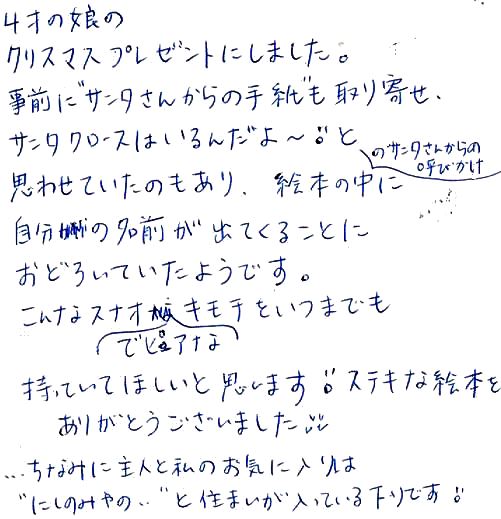 4才の娘の
クリスマスプレゼントにしました。
事前に"サンタさんからの手紙"も取り寄せ、
サンタクロースはいるんだよ～!!と
のサンタさんからの
呼びかけ
思わせていたのもあり、絵本の中に
自分の名前が出てくることに
おどろいていたようです。
こんなスナオ キモチをいつまでも
でピュアな
持っていてほしいと思います!!ステキな絵本を
ありがとうございました!!
…ちなみに主人と私のお気に入りは
"にしのみやの‥"と住まいが入っている下りです!!